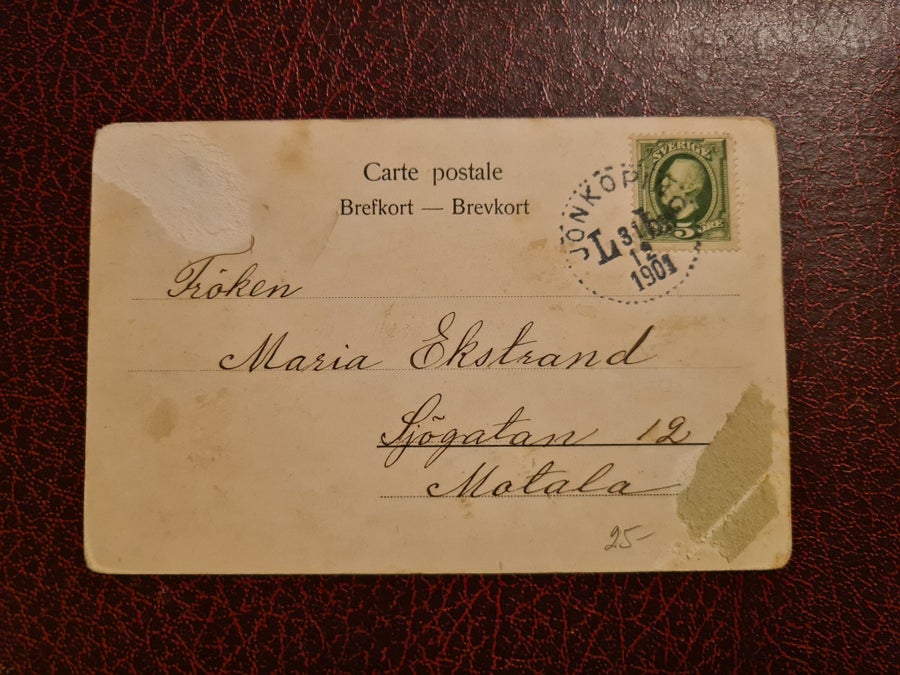 Carte postale
Brefkort — Brevkort
SVERIGE
5
JÖNKÖPING
L L
31
12
1901
Fröken
Maria Ekstrand
Sjögatan 12
Motala
25-